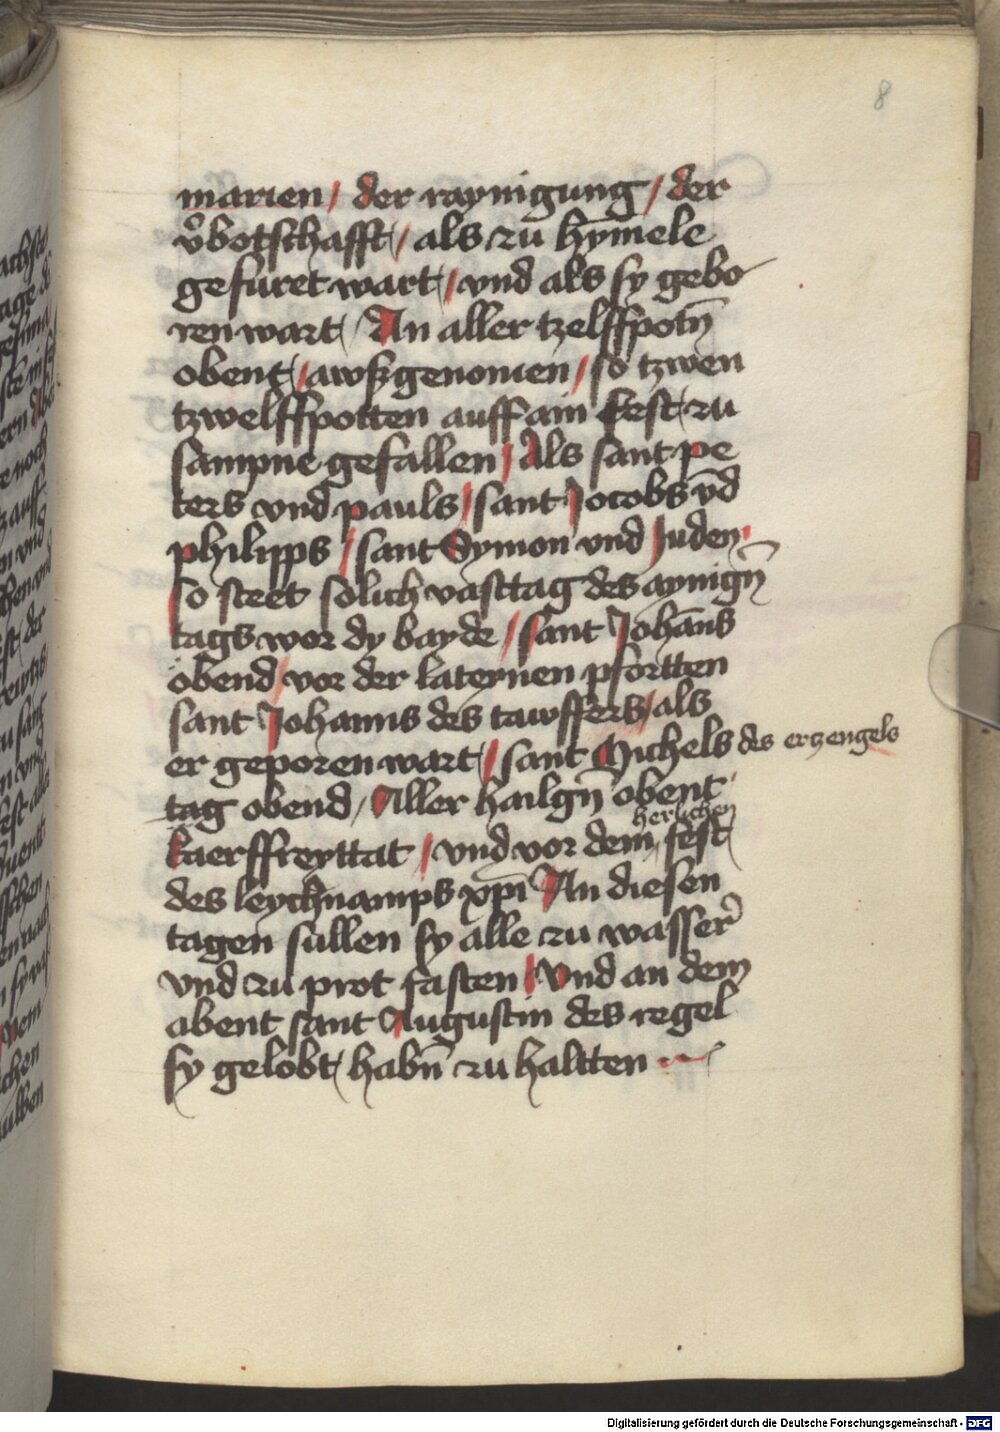 8
marien / der raynigung / der
v̊botschafft / als zu hymele
gefuret wart / vnd als sy gebo
ren wart / An aller tzelffpotn̄
obent / awßgenomen / so tzwen
tzwelffpotten auff ain fest zu
sampne gefallen / Als sant pe
ters vnd pauls / sant Jocobs vn̄d
philipps / sant Symon vnd Juden
so steet solich vasttag des aynign̄
tags wor dy bayde / sant Johan̄s
obend / vor der laternen pfortten
sant Johanns des tawffers / als
er geporen wart / sant Michels des erzengels
tag obend / Aller hailgn̄ obent
herlichen
karffreyttat / vnd vor dem fest
des leychnamps xp̄i An diesen
tagen sullen sy alle zu wasser
vnd zu prot fasten / Vnd an dem
abent sant Augustin des regel
sy gelobt habn̄ zu haltten
Digitalisierung gefördert durch die Deutsche Forschungsgemeinschaft - DFG